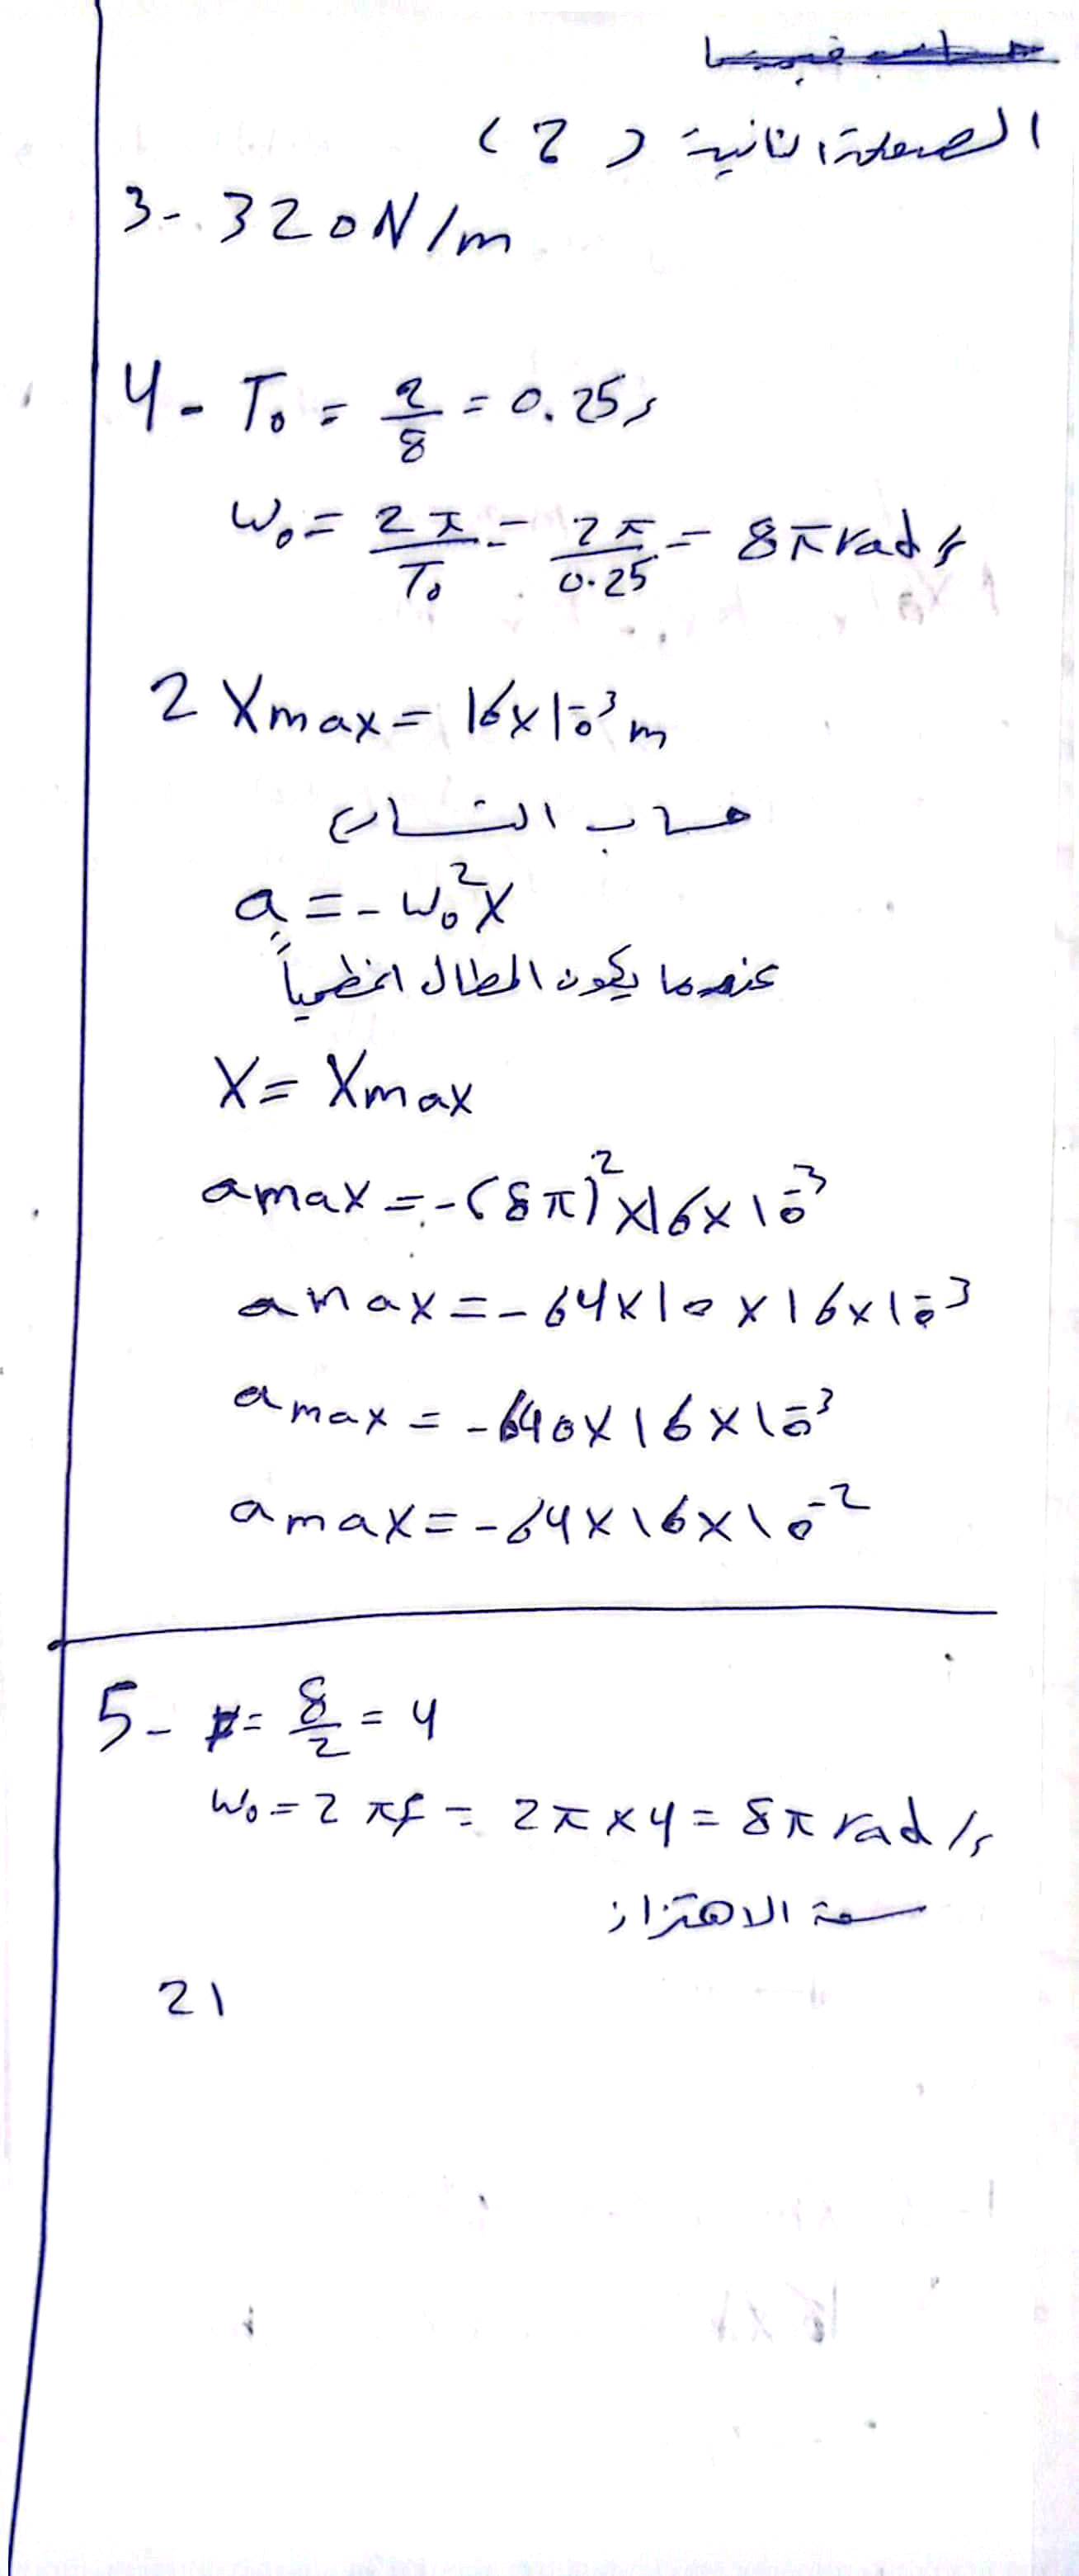 الصفحة الثانية (2)
3- 320 N/m
4- T₀ = 2/8 = 0.25 s
ω₀ = 2π/T₀ = 2π/0.25 = 8π rad/s
2 Xmax = 16×10⁻³ m
حساب التسارع
a = - ω₀² x
عندما يكون المطال اعظمياً
X = Xmax
amax = -(8π)² × 16 × 10⁻³
amax = - 64 × 10 × 16 × 10⁻³
amax = - 640 × 16 × 10⁻³
amax = - 64 × 16 × 10⁻²
5- = 8/2 = 4
ω₀ = 2πf = 2π × 4 = 8π rad/s
سعة الاهتزاز
21